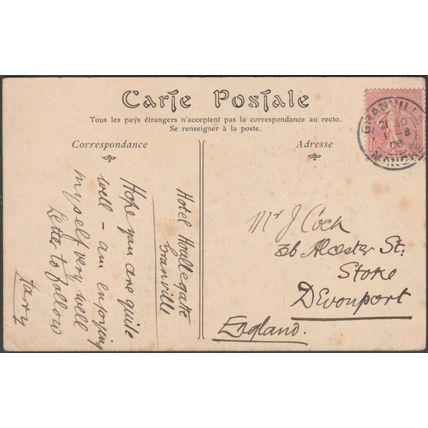 Carte Postale
Tous les pays étrangers n'acceptent pas la correspondance au recto.
Se renseigner à la poste.
Correspondance
Adresse
GRANVILLE
MANCHE
Hotel Houllegatte
Granville
Hope you are quite
well - am enjoying
myself very well
Letter to follow
Harry
Mr J. Cock
36 Alcester St:
Stoke
Devonport
England.